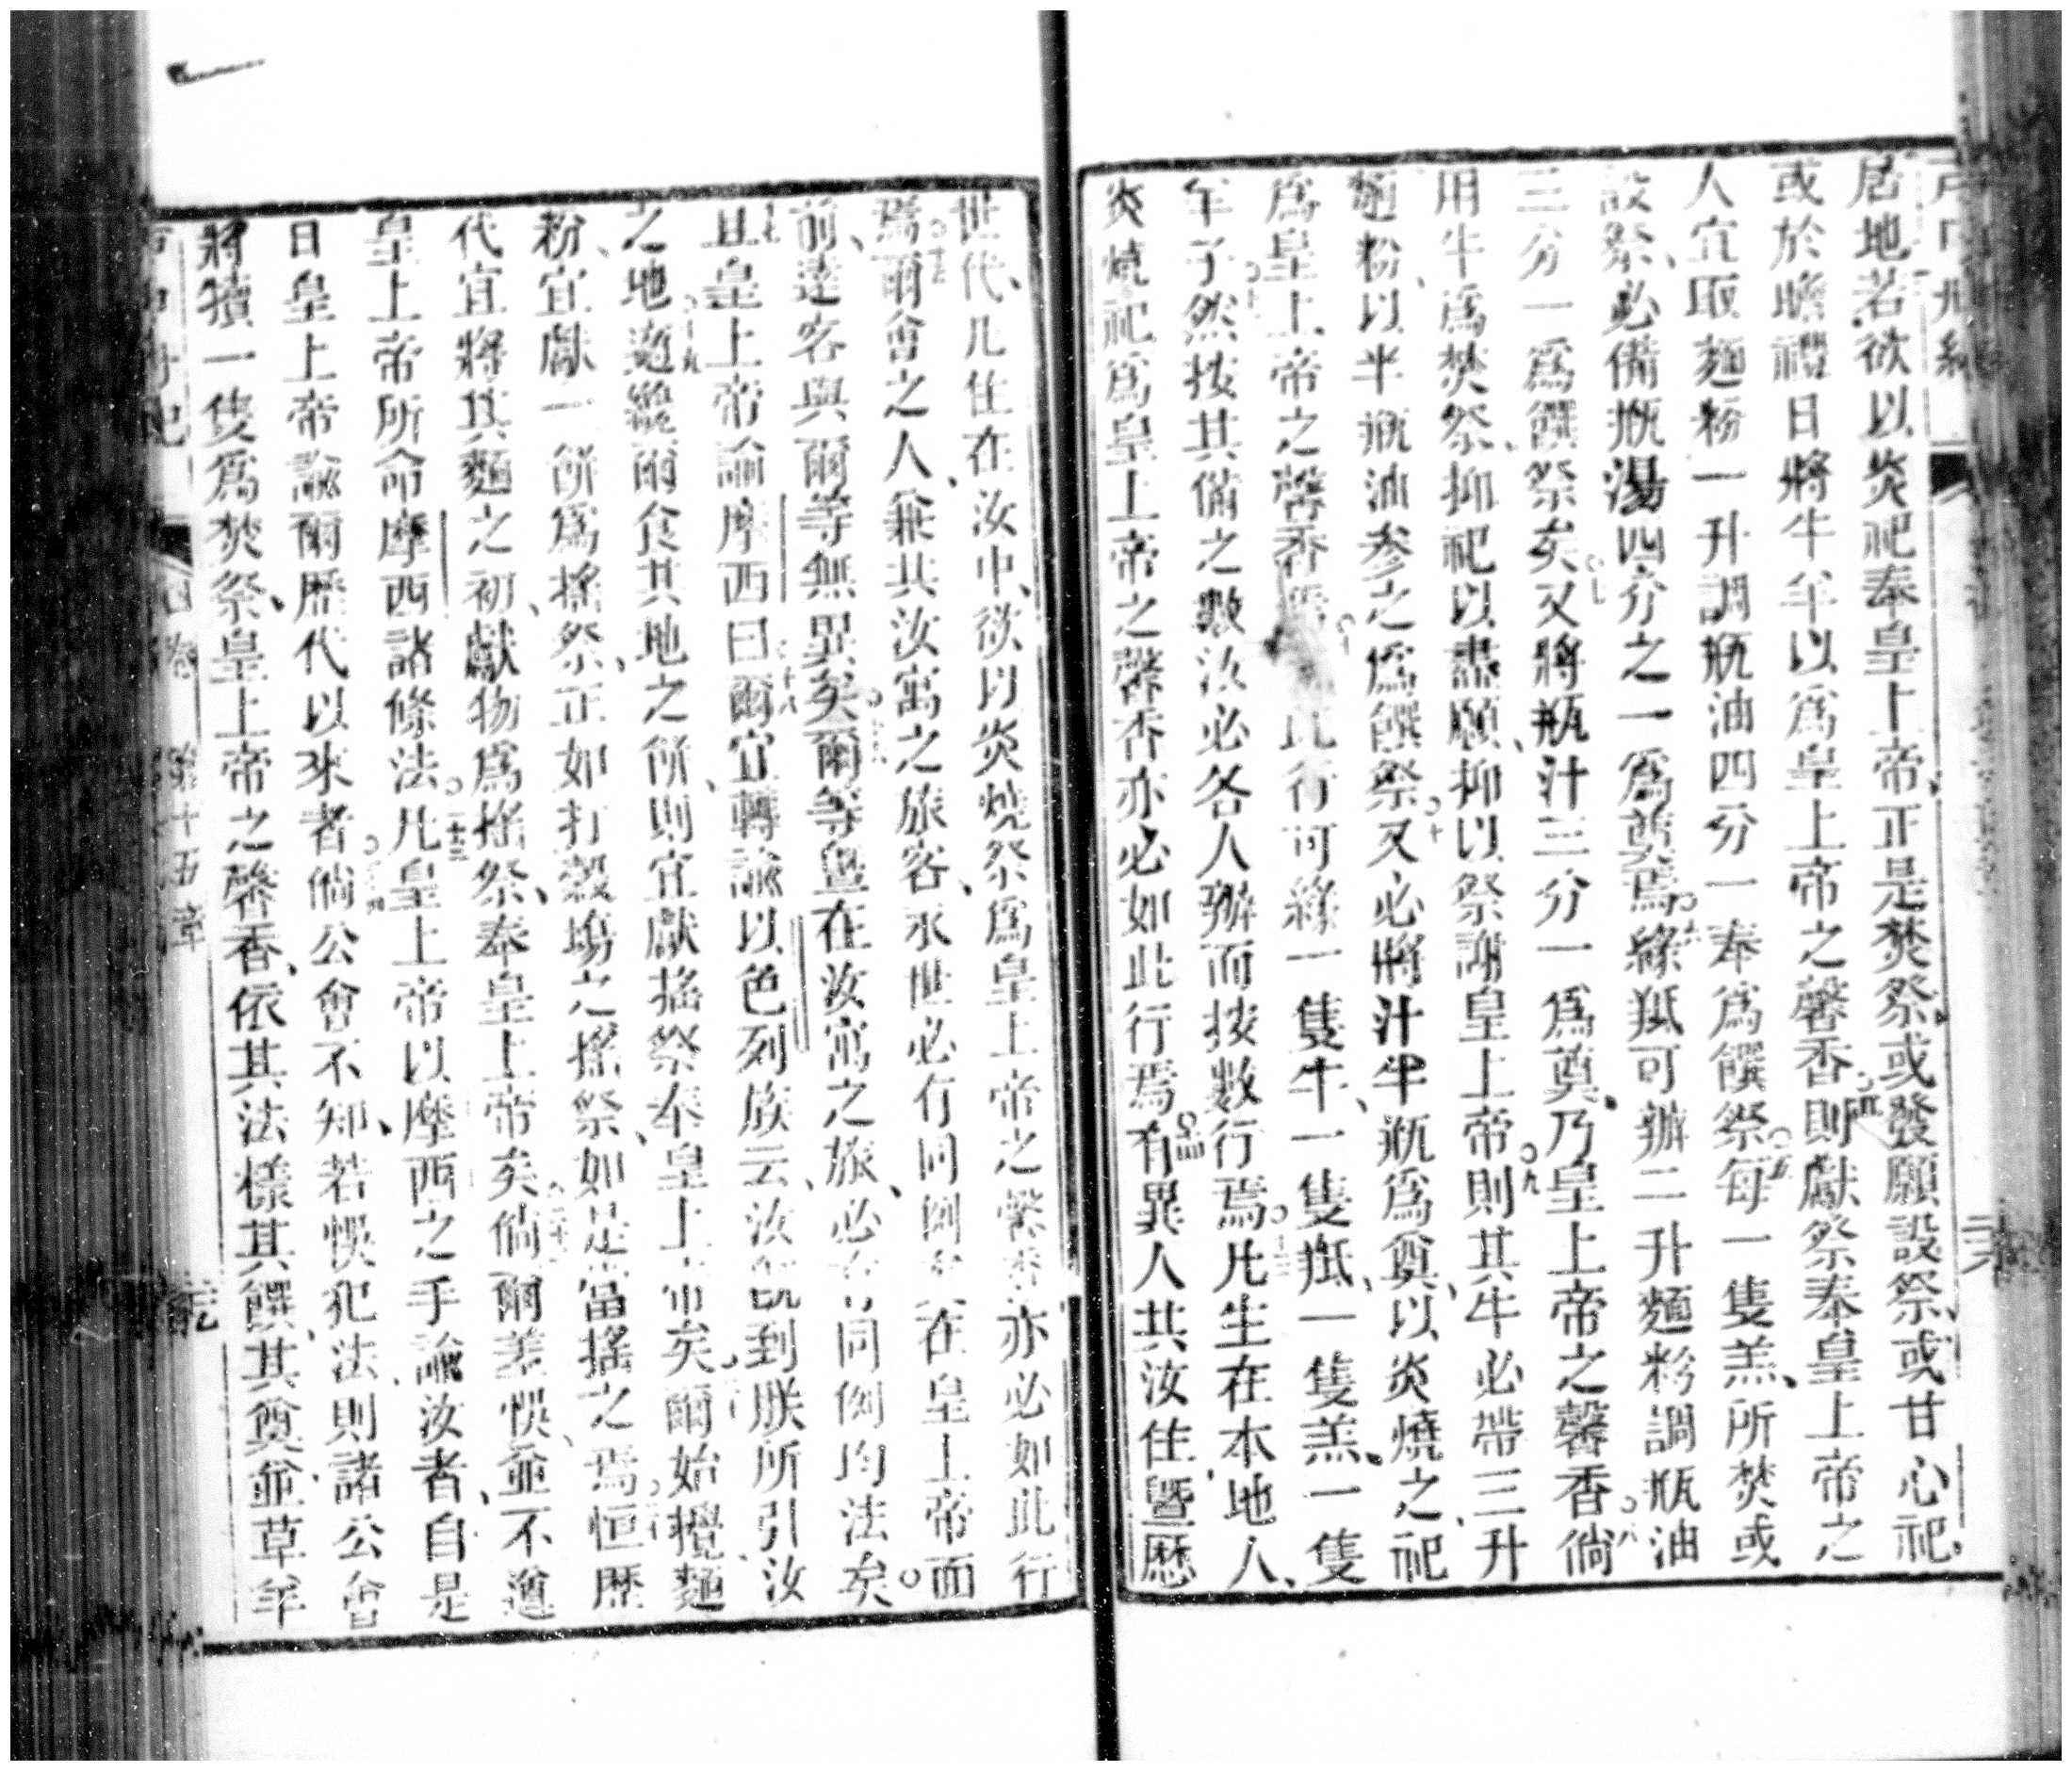 居地、若欲以炎祀奉皇上帝、正是焚祭、或發願設祭、或甘心祀、
或於瞻禮日將牛羊以爲皇上帝之馨香、則獻祭奉皇上帝之
人宜取麵粉一升調瓶油四分一奉爲饌祭、每一隻羔、所焚或
設祭、必備瓶湯四分之一爲奠焉、緣羝可辦二升麵粉調瓶油
三分一爲饌祭矣、又將瓶汁三分一爲奠、乃皇上帝之馨香、倘
用牛爲焚祭、抑祀以盡願、抑以祭謝皇上帝、則其牛必帶三升
麵粉、以半瓶油參之爲饌祭、又必將汁半瓶爲奠、以炎燒之、祀
爲皇上帝之馨香焉、此行可緣一隻牛、一隻羝、一隻羔、一隻
羊子、然按其備之數、汝必各人辦而按數行焉、凡生在本地人、
炎燒祀爲皇上帝之馨香、亦必如此行焉、有異人共汝住、曁歷
世代、凡住在汝中、欲以炎燒祭爲皇上帝之馨香、亦必如此行
焉、爾會之人、兼其汝寓之旅客、永世必有同例、在皇上帝面
前、達客與爾等無異矣、爾等曁在汝寓之旅、必同例均法矣。
且皇上帝諭摩西曰、爾宜轉諭以色列族云、汝既到朕所引汝
之地、適纔爾食其地之餅、則宜獻搖祭奉皇上帝矣、爾始攪麵
粉、宜獻一餅爲搖祭、正如打穀塲之搖祭、如是當搖之焉、恒歷
代宜將其麵之初、獻物爲搖祭、奉皇上帝矣、倘爾差悞、並不遵
皇上帝所命摩西諸條法、凡皇上帝以摩西之手諭汝者、自是
日皇上帝諭爾歷代以來者、倘公會不知、若悞犯法、則諸公會
將犢一隻爲焚祭、皇上帝之馨香、依其法樣其饌、其奠並草羊
第十五章